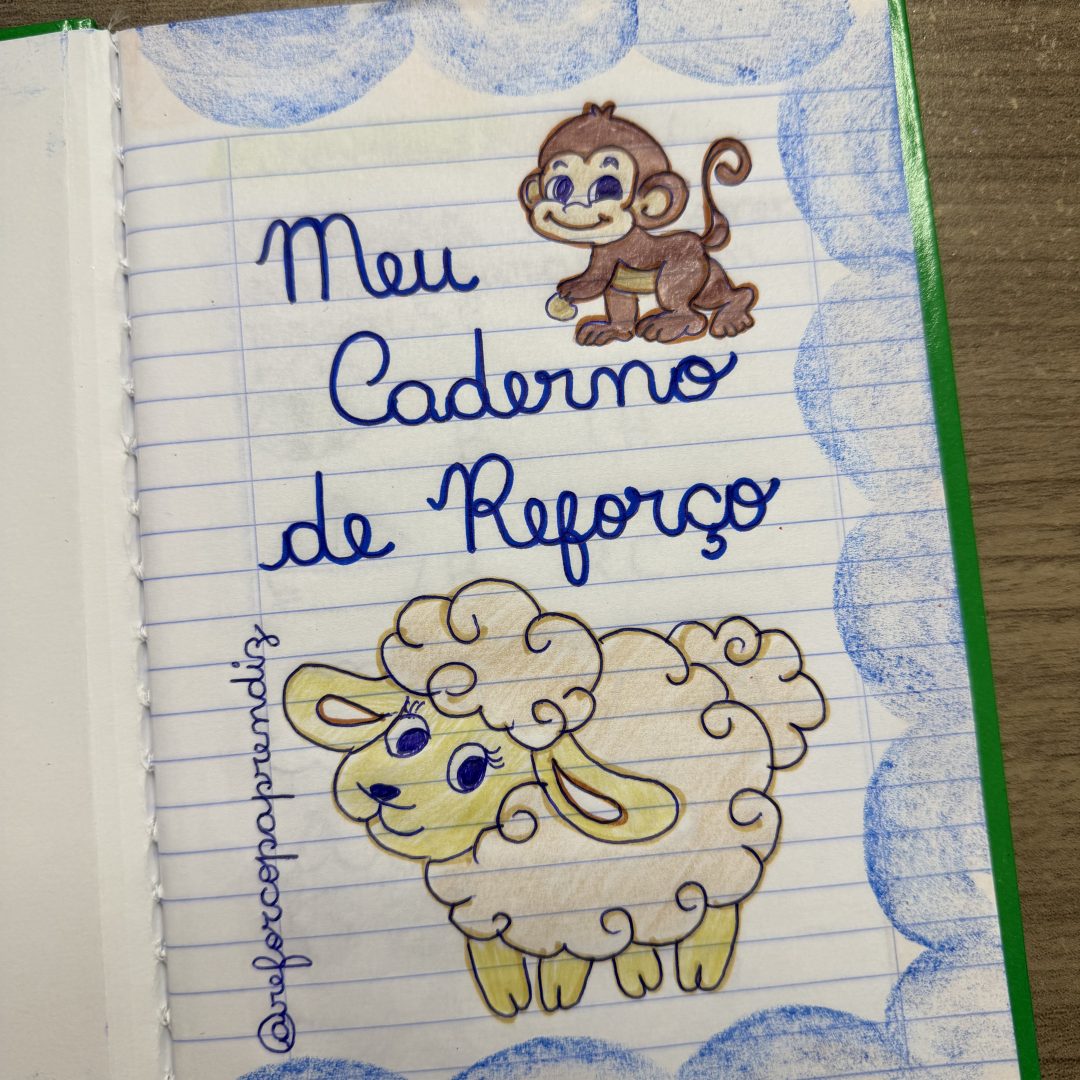 Meu
Caderno
de Reforço
@reforcopaprendiz